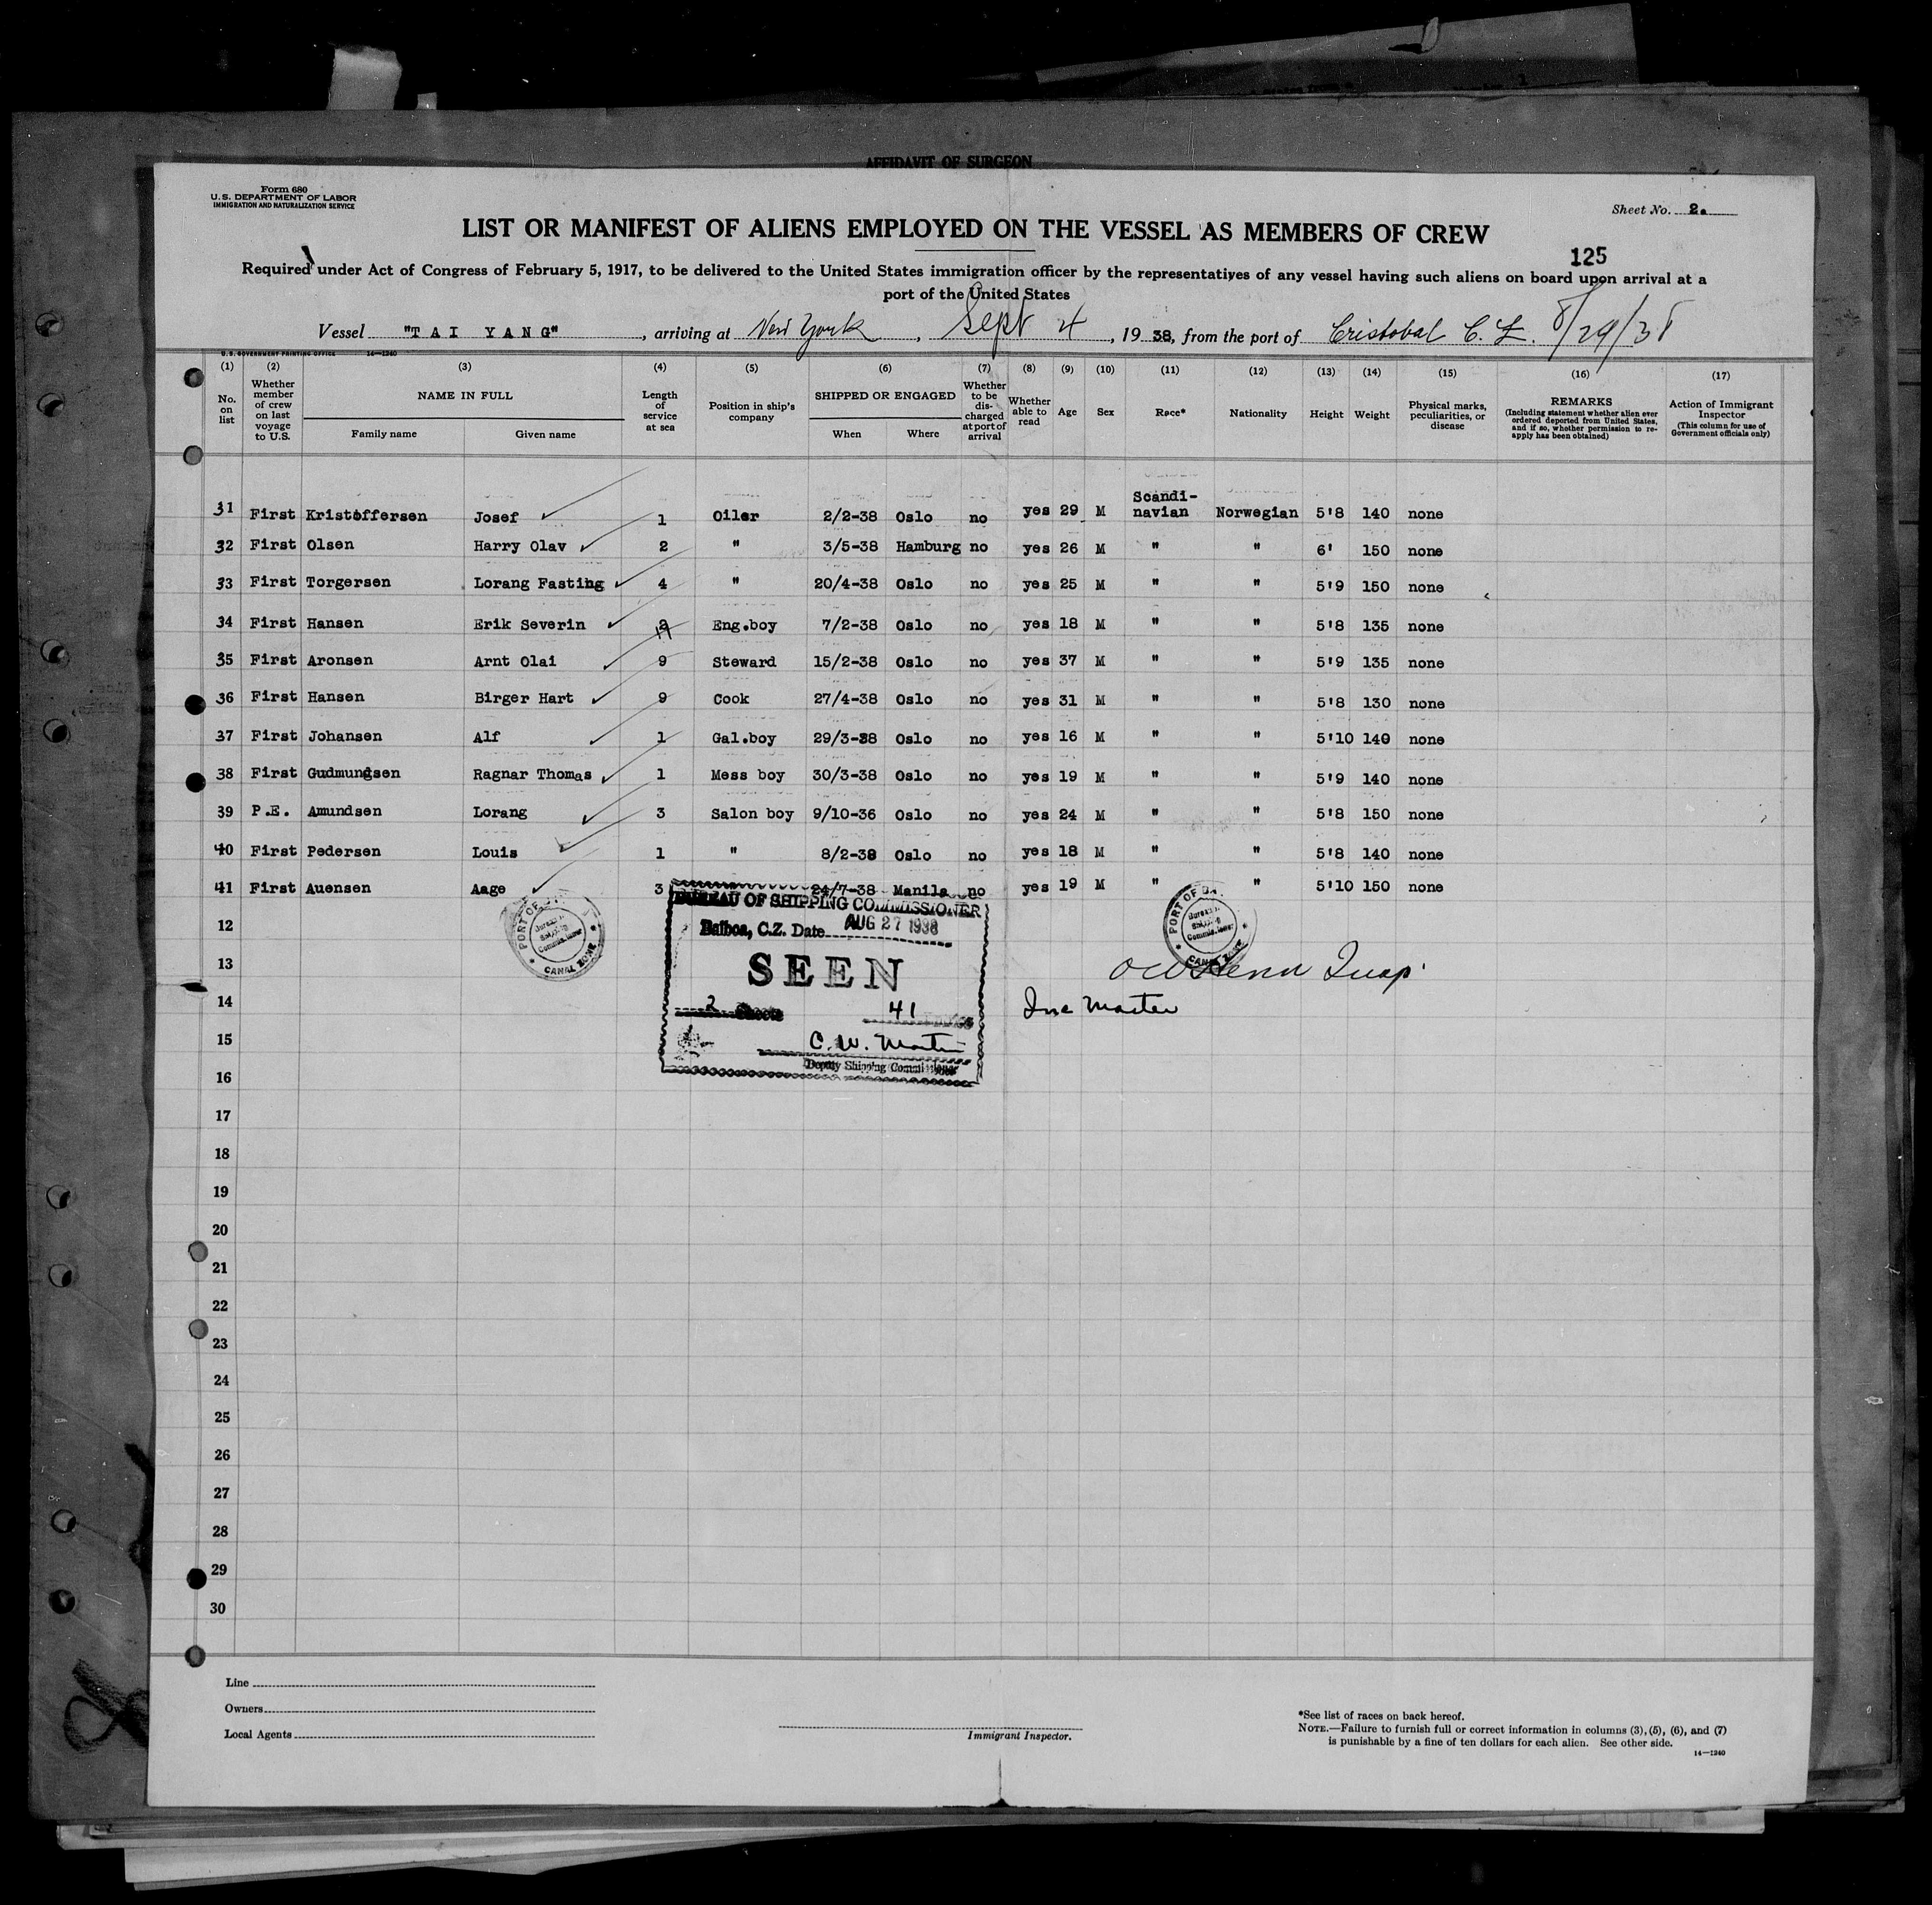 AFFIDAVIT OF SURGEON
Form 680
U.S. DEPARTMENT OF LABOR
IMMIGRATION AND NATURALIZATION SERVICE
Sheet No. 2.
LIST OR MANIFEST OF ALIENS EMPLOYED ON THE VESSEL AS MEMBERS OF CREW
125
Required under Act of Congress of February 5, 1917, to be delivered to the United States immigration officer by the representatives of any vessel having such aliens on board upon arrival at a
port of the United States
Vessel "TAI YANG", arriving at New York, Sept 4, 1938, from the port of Cristobal C. Z. 8/29/38
U.S. GOVERNMENT PRINTING OFFICE 14—1240
(1) (2) (3) (4) (5) (6) (7) (8) (9) (10) (11) (12) (13) (14) (15) (16) (17)
No. on list
Whether member of crew on last voyage to U.S.
NAME IN FULL
Family name
Given name
Length of service at sea
Position in ship's company
SHIPPED OR ENGAGED
When
Where
Whether to be discharged at port of arrival
Whether able to read
Age
Sex
Race*
Nationality
Height
Weight
Physical marks, peculiarities, or disease
REMARKS
(Including statement whether alien ever ordered deported from United States, and if so, whether permission to re-apply has been obtained)
Action of Immigrant Inspector
(This column for use of Government officials only)
31 First Kristoffersen Josef 1 Oiler 2/2-38 Oslo no yes 29 M Scandi-navian Norwegian 5'8 140 none
32 First Olsen Harry Olav 2 " 3/5-38 Hamburg no yes 26 M " " 6' 150 none
33 First Torgersen Lorang Fasting 4 " 20/4-38 Oslo no yes 25 M " " 5'9 150 none
34 First Hansen Erik Severin 2 Eng.boy 7/2-38 Oslo no yes 18 M " " 5'8 135 none
35 First Aronsen Arnt Olai 9 Steward 15/2-38 Oslo no yes 37 M " " 5'9 135 none
36 First Hansen Birger Hart 9 Cook 27/4-38 Oslo no yes 31 M " " 5'8 130 none
37 First Johansen Alf 1 Gal.boy 29/3-38 Oslo no yes 16 M " " 5'10 140 none
38 First Gudmundsen Ragnar Thomas 1 Mess boy 30/3-38 Oslo no yes 19 M " " 5'9 140 none
39 P.E. Amundsen Lorang 3 Salon boy 9/10-36 Oslo no yes 24 M " " 5'8 150 none
40 First Pedersen Louis 1 " 8/2-38 Oslo no yes 18 M " " 5'8 140 none
41 First Auensen Aage 3 24/7-38 Manila no yes 19 M " " 5'10 150 none
PORT OF
CANAL ZONE
BUREAU OF SHIPPING COMMISSIONER
Balboa, C.Z. Date AUG 27 1938
SEEN
2 Sheets 41
C. W. Martin
Deputy Shipping Commissioner
PORT OF
CANAL ZONE
Insp.
For Master
12
13
14
15
16
17
18
19
20
21
22
23
24
25
26
27
28
29
30
Line
Owners
Local Agents
Immigrant Inspector.
*See list of races on back hereof.
NOTE.—Failure to furnish full or correct information in columns (3), (5), (6), and (7)
is punishable by a fine of ten dollars for each alien. See other side.
14—1240